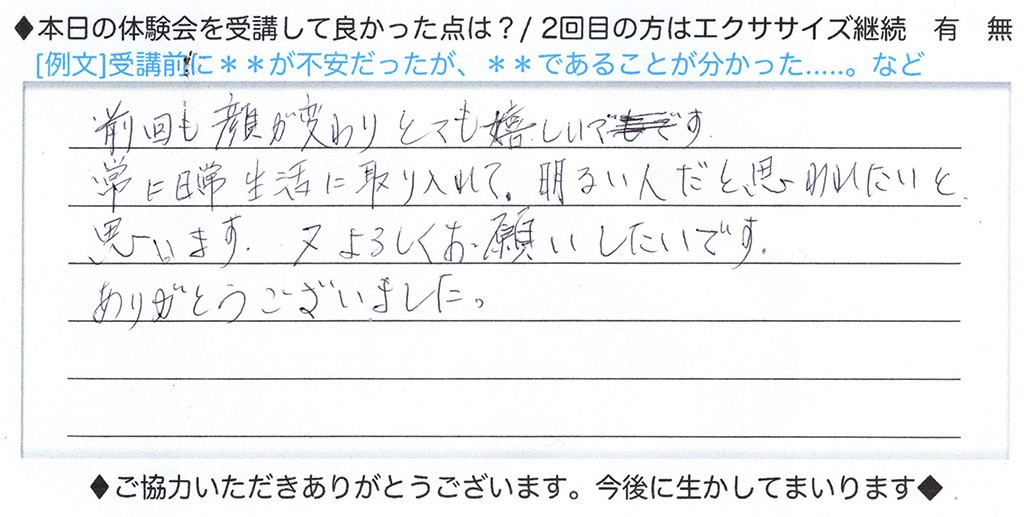 ◆本日の体験会を受講して良かった点は?/ 2回目の方はエクササイズ継続 有 無
[例文]受講前に＊＊が不安だったが、＊＊であることが分かった.....。など
前回も顔が変わりとても嬉しいです.
常に日常生活に取り入れて。明るい人だと、思われたいと、
思います. 又よろしくお願いしたいです.
ありがとうございました。
◆ご協力いただきありがとうございます。今後に生かしてまいります◆